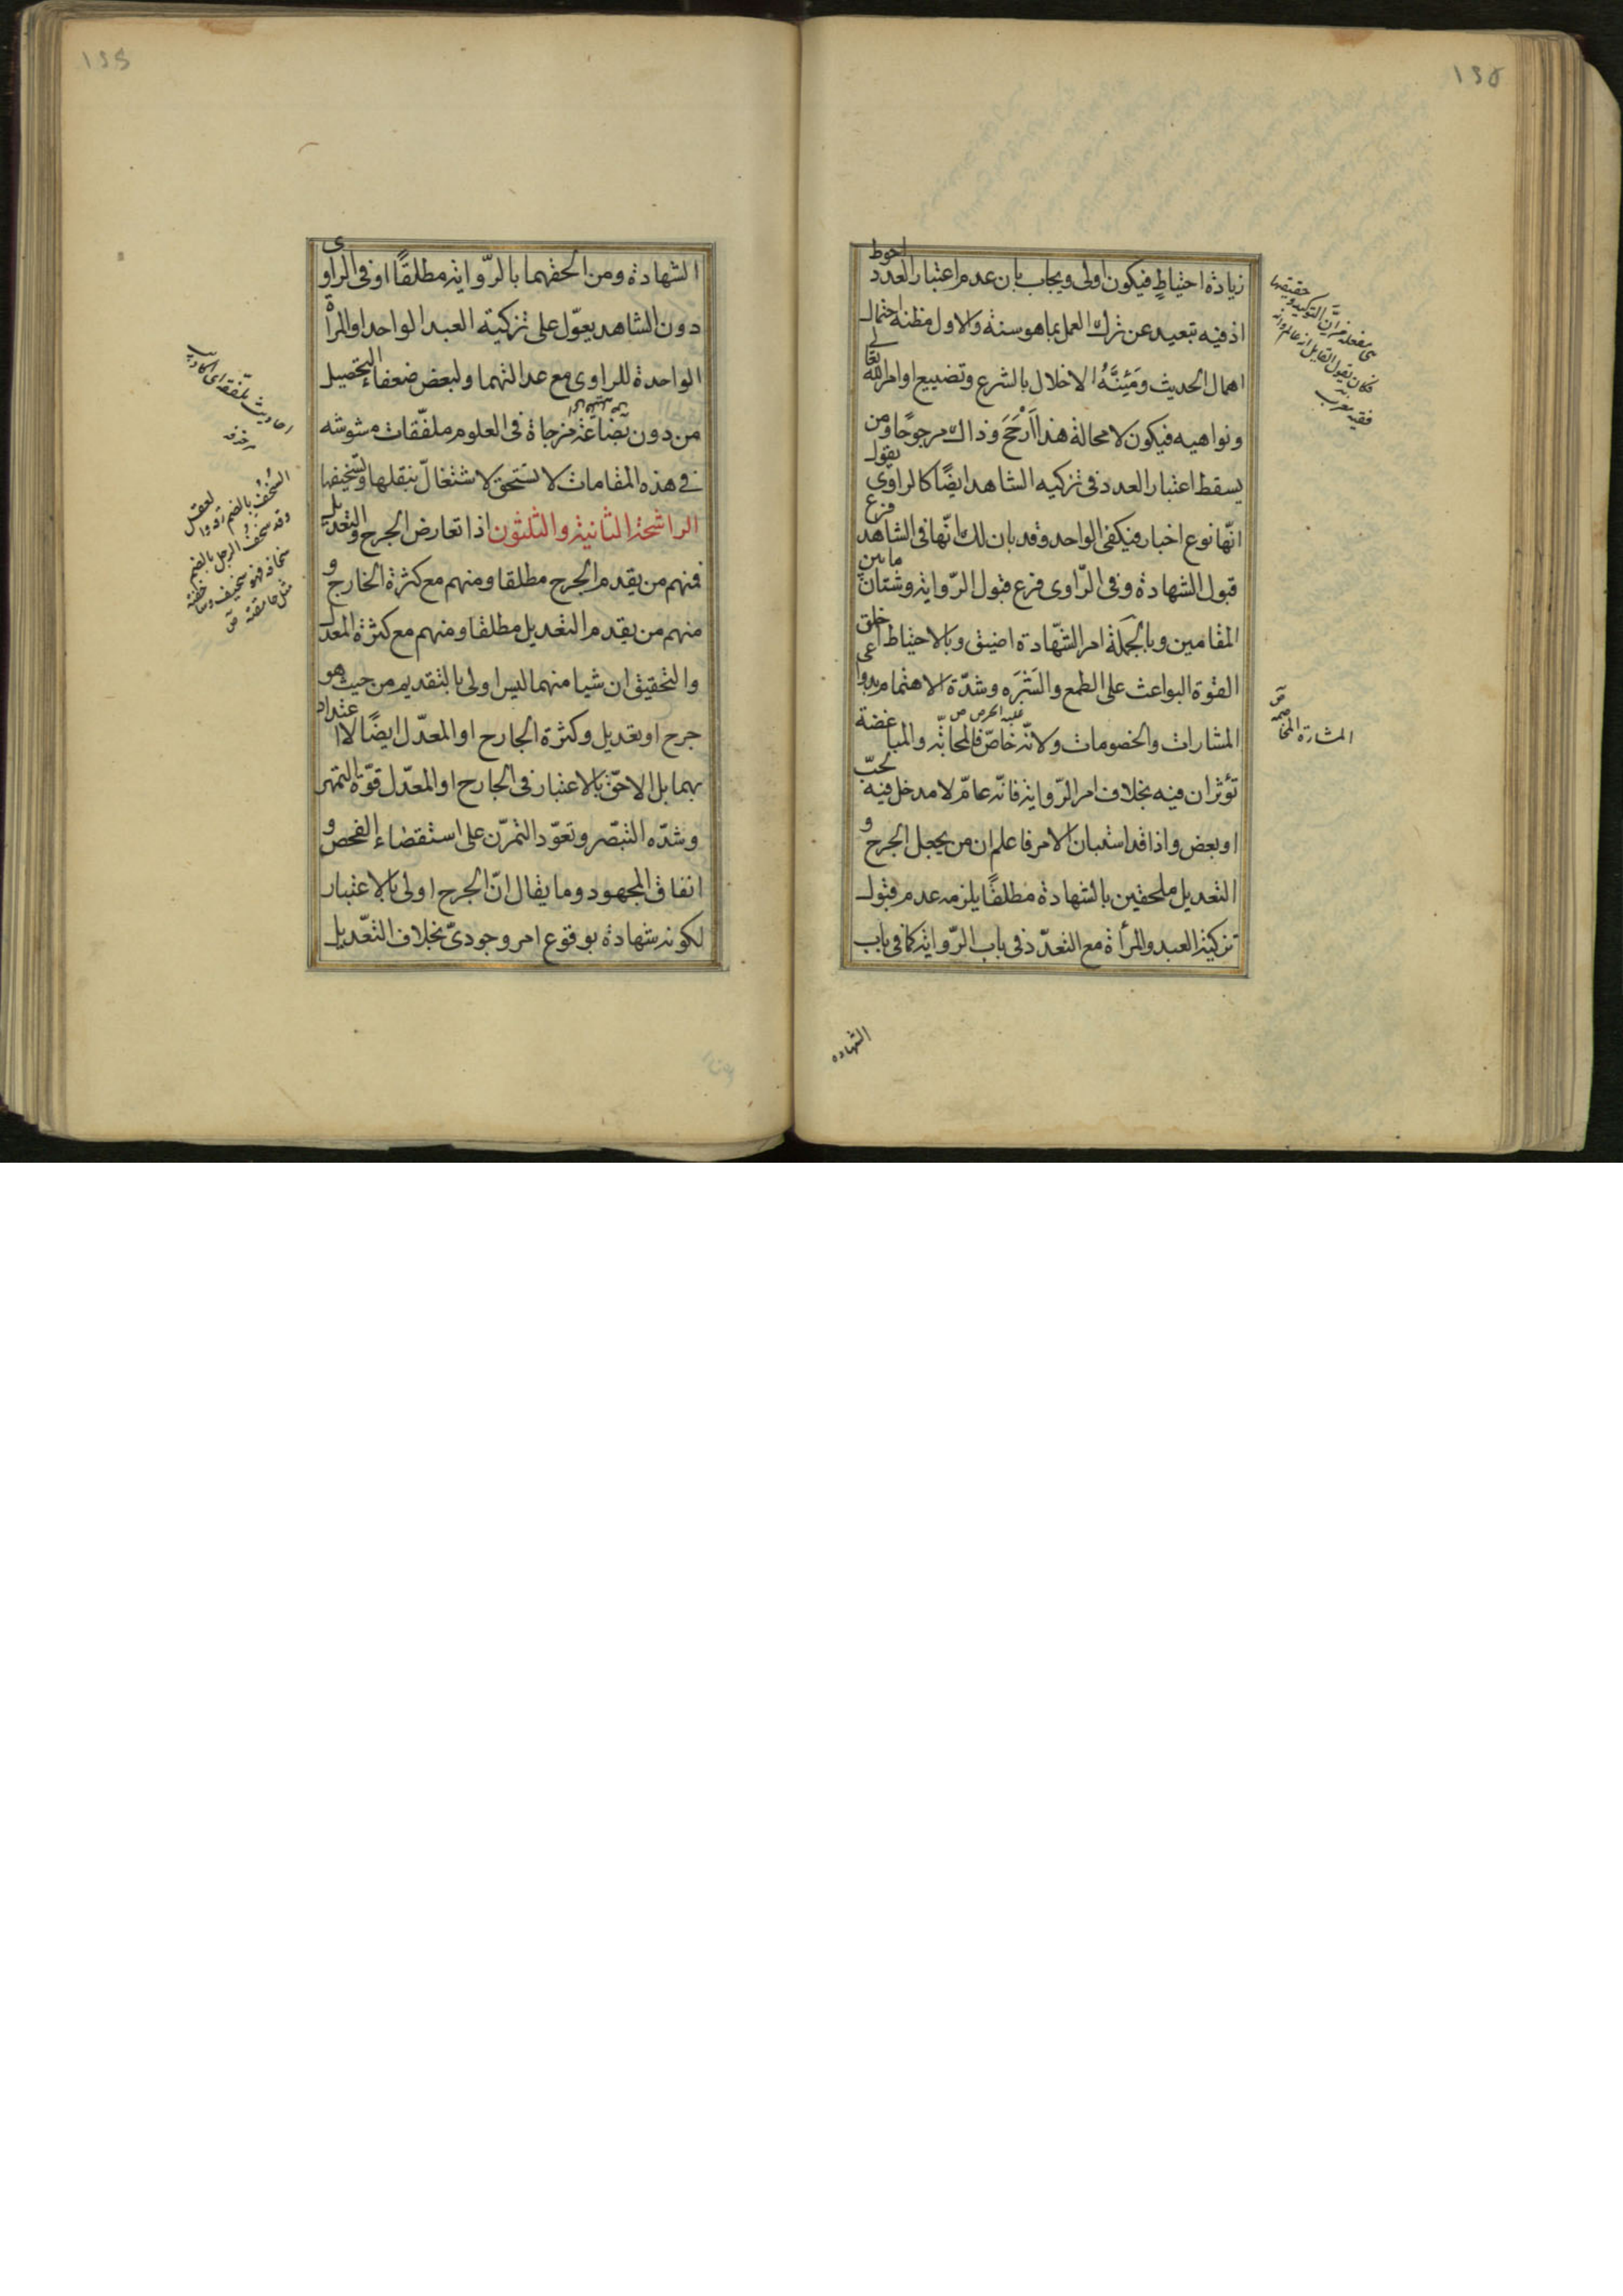 ١٣٥
زيادة احتياطٍ فيكون اولى ويجاب بان عدم اعتبار العدد احوط
اذ فيه تبعيد عن ترك العمل بما هو سنة والاول مظنه احتمال
اهمال الحديث ومَئِنَّهُ الاخلال بالشرع وتضييع اوامر الله تعالى
ونواهيه فيكون لا محالة هذا اَرْجَحَ وذاك مرجوحًا ومن يقول
يسقط اعتبار العدد فى تزكيه الشاهد ايضًا كالراوى
انّها نوع اخبار فيكفى الواحد وقد بان لك انّها فى الشاهد فرع
قبول الشهادة وفى الرّاوى فرع قبول الرّواية وشتان ما بين
المقامين وبالجملة امر الشّهادة اضيق وبالاحتياط اخلق
القوة البواعث على الطمع والشَرَه وشدّة الاهتمام بدواعى
المشارات والخصومات ولانّه خاصّ فالمحابّه والمباغضة
غلبه الحرص ص
تؤثران فيه بخلاف امر الرّواية فانّه عامّ لا مدخل فيه لحبّ
او بعض واذا قد استبان الامر فاعلم ان من يجعل الجرح و
التعديل ملحقين بالشهادة مطلقًا يلزمه عدم قبول
تزكية العبد والمرأة مع التعدّد فى باب الرّواية كما فى باب
الشهاده
المشارة المخاصمه ص
الشهادة ومن الحقهما بالرّواية مطلقًا او فى الراوى
دون الشاهد يعوّل على تزكية العبد الواحد او المرأة
الواحدة للراوى مع عدالتهما ولبعض ضعفاء التحصيل
من دون بضاعة مزجاة فى العلوم ملفّقات مشوشه
فى هذه المقامات لا تستحق الاشتغال بنقلها وتسخيفها
الراشحة الثانية والثلثون اذا تعارض الجرح والتعديل
فمنهم من يقدم الجرح مطلقا ومنهم مع كثرة الخارج و
منهم من يقدم التعديل مطلقا ومنهم مع كثرة المعدل
والتحقيق ان شيا منهما ليس اولى بالتقديم من حيث هو
جرح او تعديل وكثرة الجارح او المعدّل ايضًا لا اعتداد
بهما بل الاحقّ بالاعتبار فى الجارح او المعدّل قوّة التمهر
وشدّه التبصّر وتعوّد التمرّن على استقصاء الفحص و
انفاق المجهود وما يقال انّ الجرح اولى بالاعتبار
لكونه شهادة بوقوع امر وجودىّ بخلاف التعّديل
احاديث ملفقة اى اكاذيب
مزخرفه
السُخف بالضم رقه العقل
وقد سخف الرجل بالضم
سخافه فهو سخيف